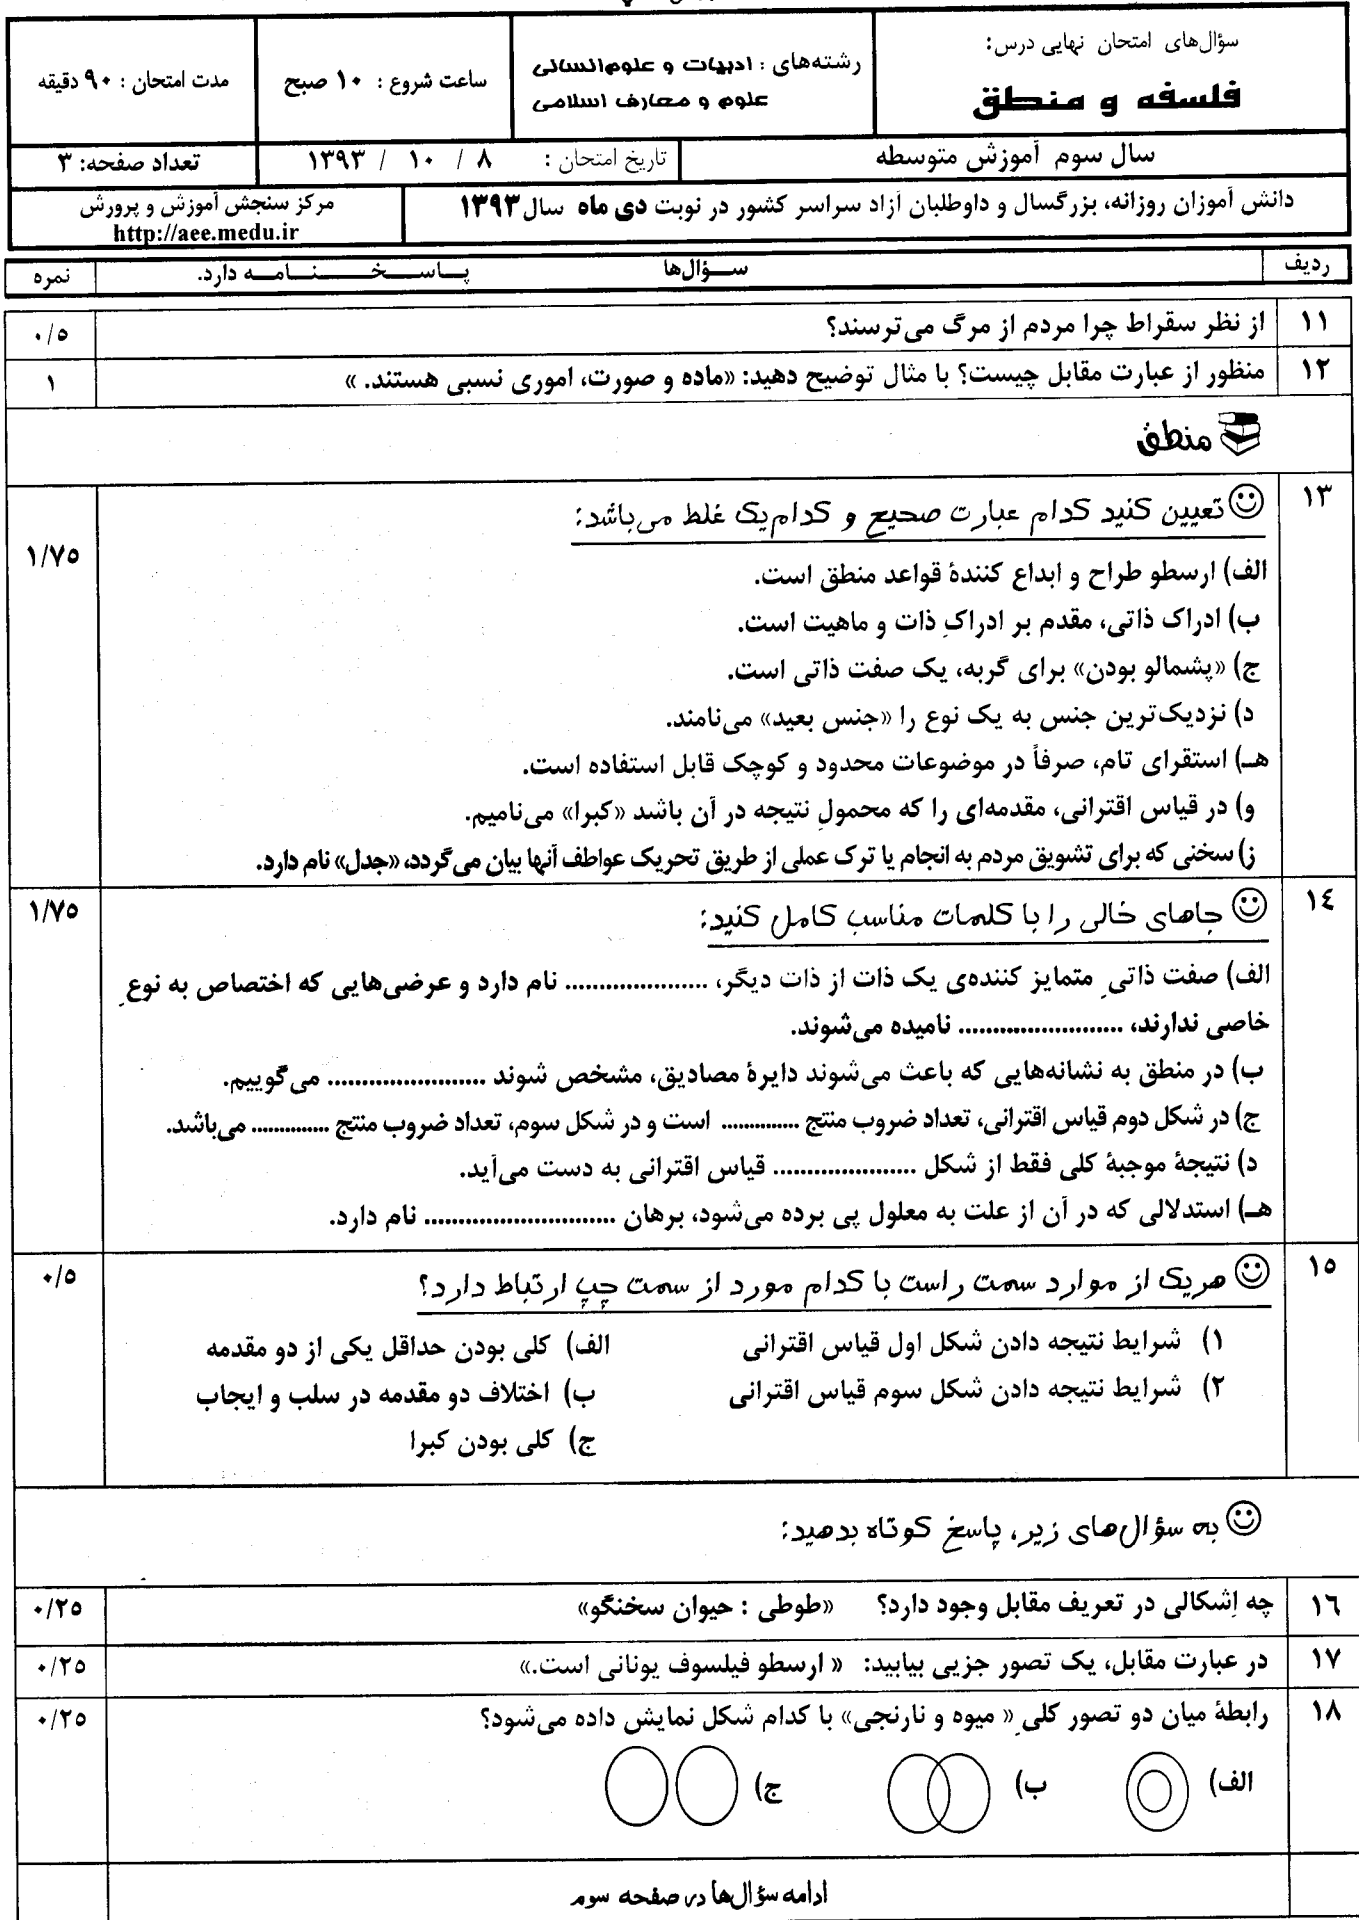 سؤال‌های امتحان نهایی درس:
فلسفه و منطق
رشته‌های : ادبیات و علوم انسانی
علوم و معارف اسلامی
ساعت شروع : ۱۰ صبح
مدت امتحان : ۹۰ دقیقه
سال سوم آموزش متوسطه
تاریخ امتحان : ۸ / ۱۰ / ۱۳۹۳
تعداد صفحه: ۳
دانش آموزان روزانه، بزرگسال و داوطلبان آزاد سراسر کشور در نوبت دی ماه سال ۱۳۹۳
مرکز سنجش آموزش و پرورش
http://aee.medu.ir
ردیف سـؤال‌ها پـاسـخـنـامـه دارد. نمره
۱۱ از نظر سقراط چرا مردم از مرگ می‌ترسند؟ ۰/۵
۱۲ منظور از عبارت مقابل چیست؟ با مثال توضیح دهید: «ماده و صورت، اموری نسبی هستند. » ۱
منطق
۱۳ تعیین کنید کدام عبارت صحیح و کدام‌یک غلط می‌باشد: ۱/۷۵
الف) ارسطو طراح و ابداع کنندهٔ قواعد منطق است.
ب) ادراک ذاتی، مقدم بر ادراکِ ذات و ماهیت است.
ج) «پشمالو بودن» برای گربه، یک صفت ذاتی است.
د) نزدیک‌ترین جنس به یک نوع را «جنس بعید» می‌نامند.
هـ) استقرای تام، صرفاً در موضوعات محدود و کوچک قابل استفاده است.
و) در قیاس اقترانی، مقدمه‌ای را که محمولِ نتیجه در آن باشد «کبرا» می‌نامیم.
ز) سخنی که برای تشویق مردم به انجام یا ترک عملی از طریق تحریک عواطف آنها بیان می‌گردد، «جدل» نام دارد.
۱۴ جاهای خالی را با کلمات مناسب کامل کنید: ۱/۷۵
الف) صفت ذاتیِ متمایز کننده‌ی یک ذات از ذات دیگر، ..................... نام دارد و عرضی‌هایی که اختصاص به نوعِ
خاصی ندارند، ........................ نامیده می‌شوند.
ب) در منطق به نشانه‌هایی که باعث می‌شوند دایرهٔ مصادیق، مشخص شوند ....................... می‌گوییم.
ج) در شکل دوم قیاس اقترانی، تعداد ضروب منتج .............. است و در شکل سوم، تعداد ضروب منتج .............. می‌باشد.
د) نتیجهٔ موجبهٔ کلی فقط از شکل ..................... قیاس اقترانی به دست می‌آید.
هـ) استدلالی که در آن از علت به معلول پی برده می‌شود، برهان ............................ نام دارد.
۱۵ هریک از موارد سمت راست با کدام مورد از سمت چپ ارتباط دارد؟ ۰/۵
۱) شرایط نتیجه دادن شکل اول قیاس اقترانی الف) کلی بودن حداقل یکی از دو مقدمه
۲) شرایط نتیجه دادن شکل سوم قیاس اقترانی ب) اختلاف دو مقدمه در سلب و ایجاب
ج) کلی بودن کبرا
به سؤال‌های زیر، پاسخ کوتاه بدهید:
۱۶ چه اِشکالی در تعریف مقابل وجود دارد؟ «طوطی : حیوان سخنگو» ۰/۲۵
۱۷ در عبارت مقابل، یک تصور جزیی بیابید: « ارسطو فیلسوف یونانی است.» ۰/۲۵
۱۸ رابطهٔ میان دو تصور کلیِ « میوه و نارنجی» با کدام شکل نمایش داده می‌شود؟ ۰/۲۵
الف) ب) ج)
ادامه سؤال‌ها در صفحه سوم